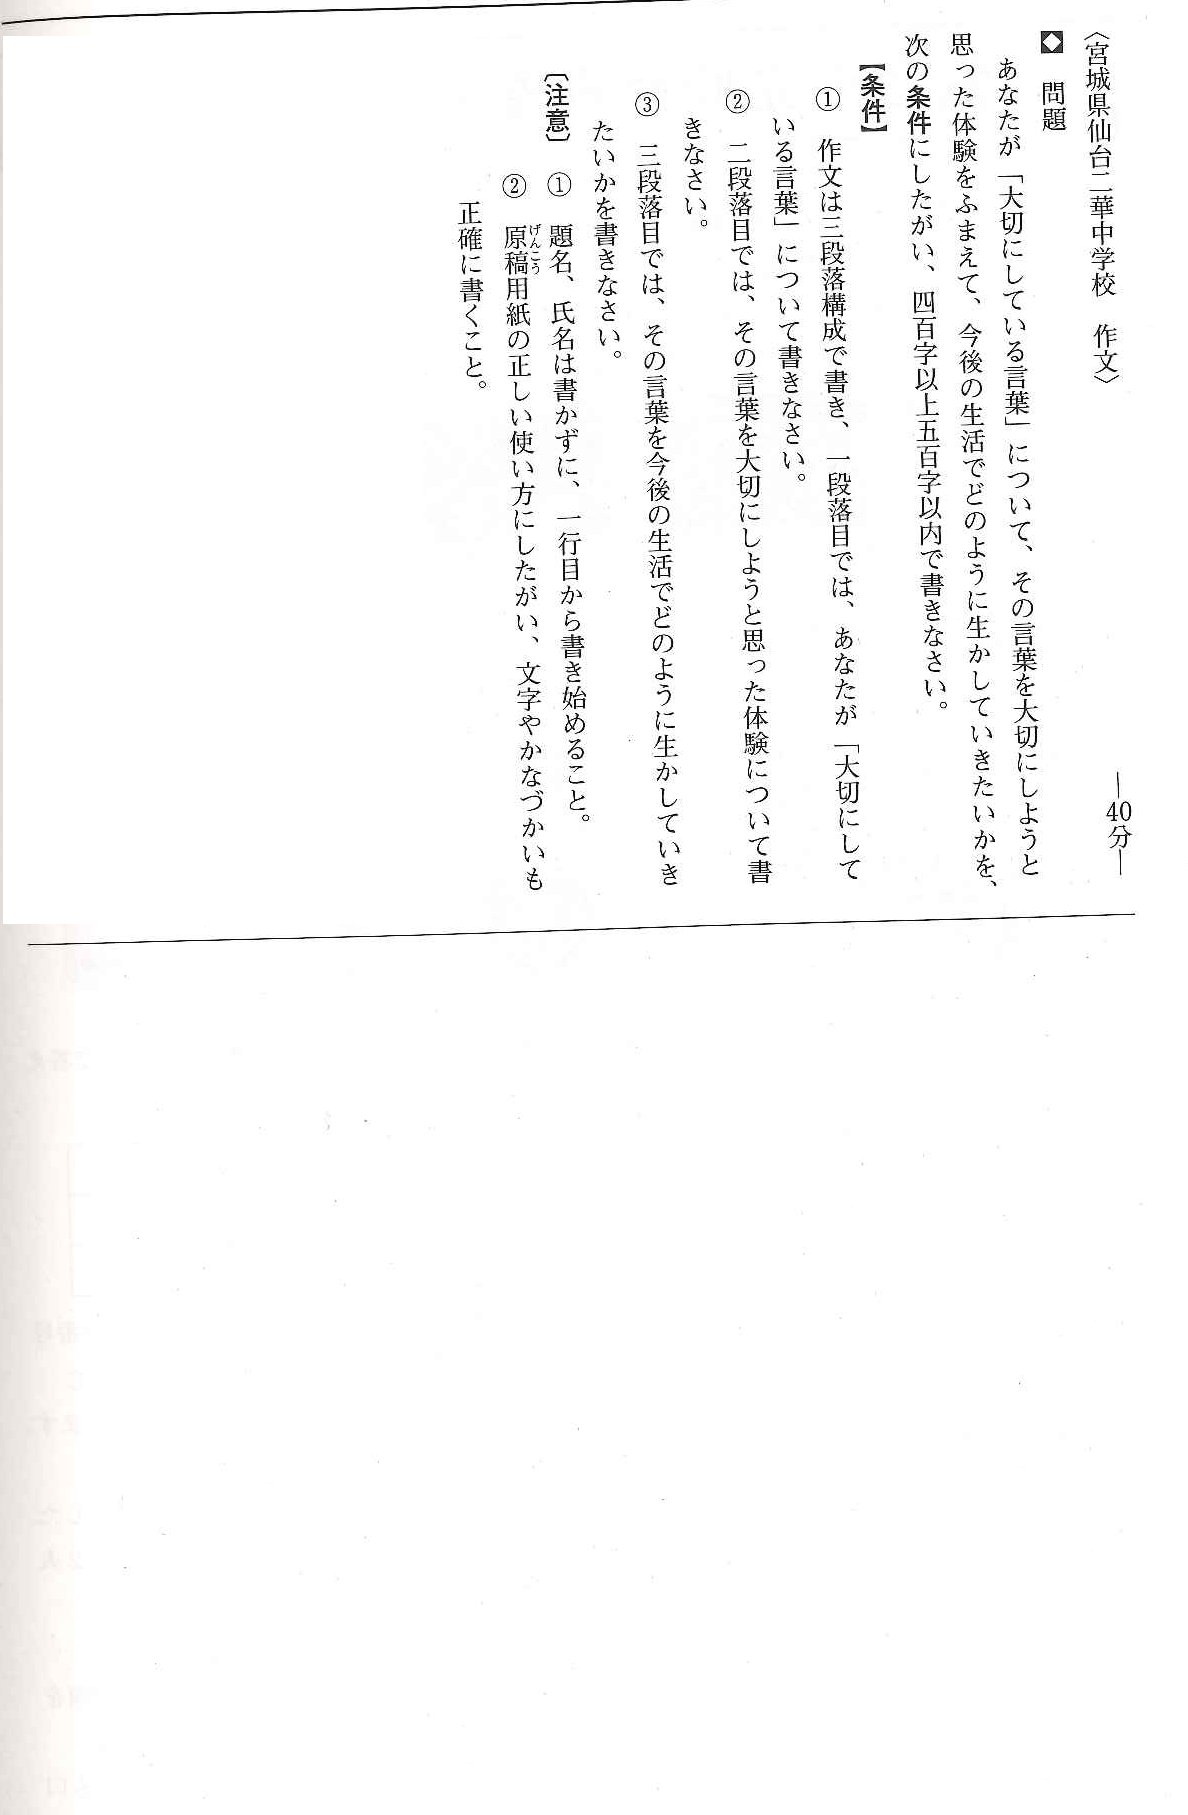 〈宮城県仙台二華中学校　作文〉
―40分―
◆　問題
あなたが「大切にしている言葉」について、その言葉を大切にしようと
思った体験をふまえて、今後の生活でどのように生かしていきたいかを、
次の条件にしたがい、四百字以上五百字以内で書きなさい。
【条件】
①　作文は三段落構成で書き、一段落目では、あなたが「大切にして
いる言葉」について書きなさい。
②　二段落目では、その言葉を大切にしようと思った体験について書
きなさい。
③　三段落目では、その言葉を今後の生活でどのように生かしていき
たいかを書きなさい。
〔注意〕　①　題名、氏名は書かずに、一行目から書き始めること。
②　原稿用紙の正しい使い方にしたがい、文字やかなづかいも
げんこう
正確に書くこと。